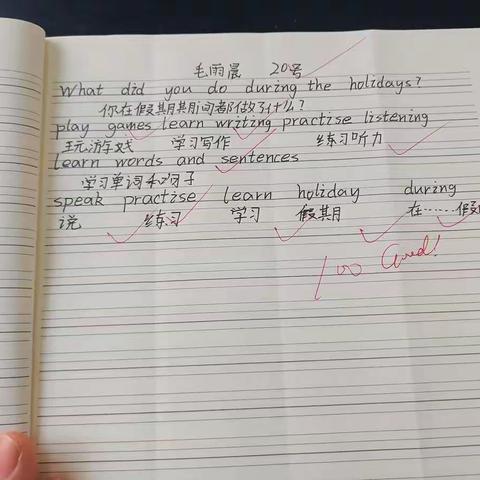 毛雨晨 20号
What did you do during the holidays?
你在假期期间都做了什么?
play games learn writing practise listening
玩游戏 学习写作 练习听力
learn words and sentences
学习单词和句子
speak practise learn holiday during
说 练习 学习 假期 在……假
100 Good!